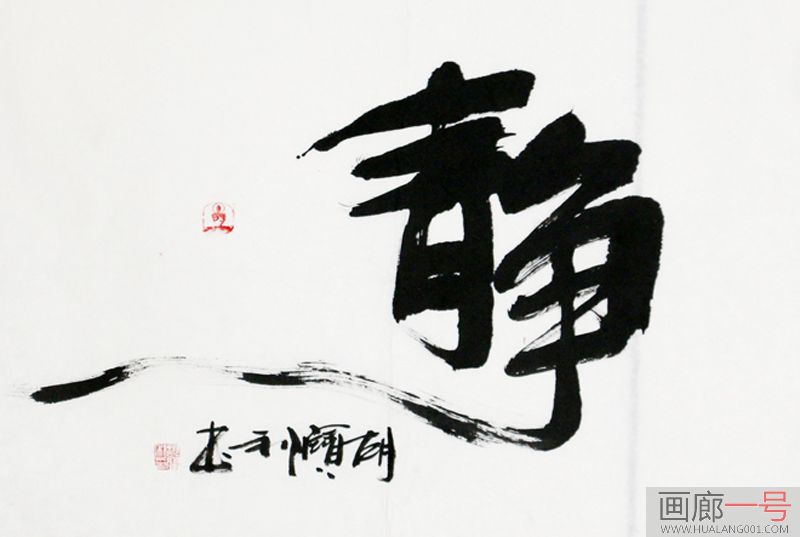 静
胡宝利书
画廊一号
WWW.HUALANG001.COM